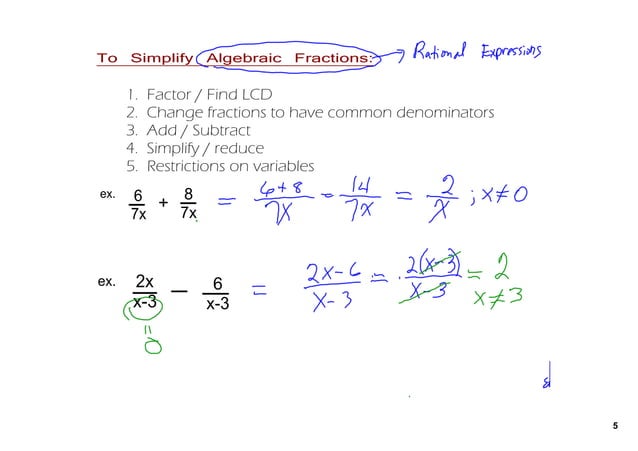 To Simplify Algebraic Fractions: → Rational Expressions
1. Factor / Find LCD
2. Change fractions to have common denominators
3. Add / Subtract
4. Simplify / reduce
5. Restrictions on variables
ex. 6/7x + 8/7x = 6+8/7x = 14/7x = 2/x ; x≠0
ex. 2x/x-3 — 6/x-3 = 2x-6/x-3 = 2(x-3)/x-3 = 2
x≠3
=
0
5